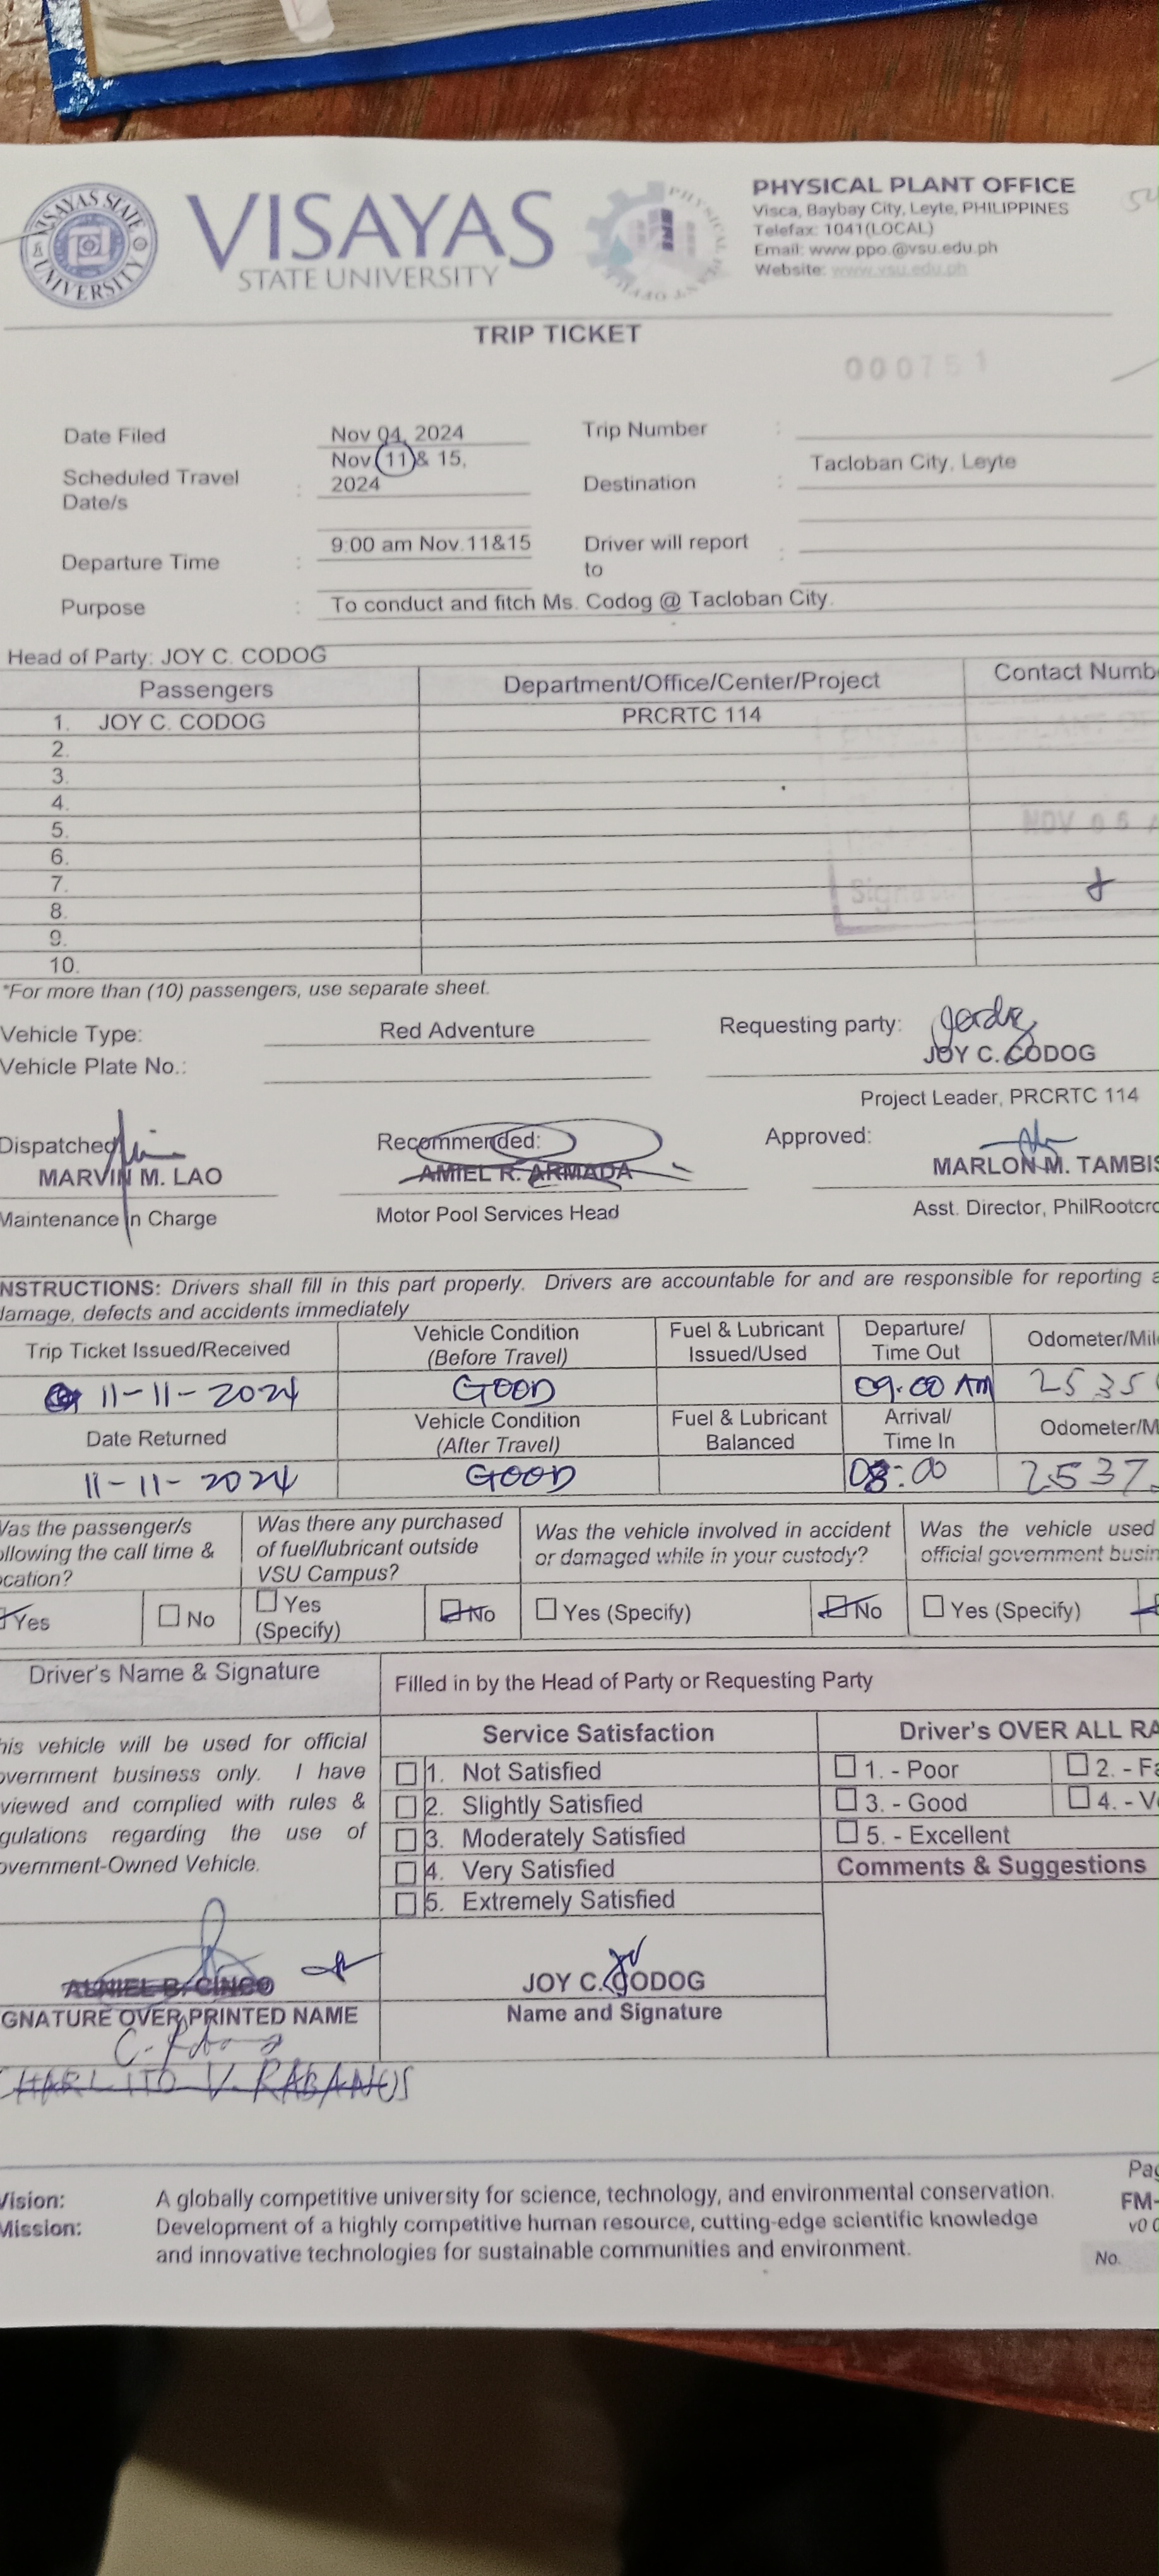 VISAYAS STATE UNIVERSITY
VISAYAS
STATE UNIVERSITY
PHYSICAL PLANT OFFICE
Visca, Baybay City, Leyte, PHILIPPINES
Telefax: 1041(LOCAL)
Email: www.ppo.@vsu.edu.ph
Website: www.vsu.edu.ph
TRIP TICKET
000751
Date Filed Nov 04, 2024 Trip Number :
Scheduled Travel Date/s : Nov 11 & 15, 2024 Destination : Tacloban City, Leyte
Departure Time : 9:00 am Nov.11&15 Driver will report to :
Purpose : To conduct and fitch Ms. Codog @ Tacloban City.
Head of Party: JOY C. CODOG
Passengers Department/Office/Center/Project Contact Numb
1. JOY C. CODOG PRCRTC 114
2.
3.
4.
5.
NOV 05
6.
7.
8.
9.
10.
*For more than (10) passengers, use separate sheet.
Vehicle Type: Red Adventure Requesting party:
JOY C. CODOG
Vehicle Plate No.:
Project Leader, PRCRTC 114
Dispatched Recommended: Approved:
MARVIN M. LAO AMIEL R. ARMADA MARLON M. TAMBIS
Maintenance in Charge Motor Pool Services Head Asst. Director, PhilRootcro
NSTRUCTIONS: Drivers shall fill in this part properly. Drivers are accountable for and are responsible for reporting a
damage, defects and accidents immediately
Trip Ticket Issued/Received Vehicle Condition (Before Travel) Fuel & Lubricant Issued/Used Departure/ Time Out Odometer/Mil
11-11-2024 GOOD 09:00 AM 2535
Date Returned Vehicle Condition (After Travel) Fuel & Lubricant Balanced Arrival/ Time In Odometer/M
11-11-2024 GOOD 08:00 2537
Was the passenger/s ollowing the call time & ocation? Was there any purchased of fuel/lubricant outside VSU Campus? Was the vehicle involved in accident or damaged while in your custody? Was the vehicle used official government busin
Yes No Yes (Specify) No Yes (Specify) No Yes (Specify)
Driver's Name & Signature Filled in by the Head of Party or Requesting Party
his vehicle will be used for official
overnment business only. I have
viewed and complied with rules &
gulations regarding the use of
overnment-Owned Vehicle.
Service Satisfaction Driver's OVER ALL RA
1. Not Satisfied 1. - Poor 2. - Fa
2. Slightly Satisfied 3. - Good 4. - Ve
3. Moderately Satisfied 5. - Excellent
4. Very Satisfied Comments & Suggestions
5. Extremely Satisfied
ALNIEL B. CINCO JOY C. CODOG
GNATURE OVER PRINTED NAME Name and Signature
CHARLITO V. RABANOS
Vision: A globally competitive university for science, technology, and environmental conservation.
Mission: Development of a highly competitive human resource, cutting-edge scientific knowledge
and innovative technologies for sustainable communities and environment.
Pag
FM-
v0
No.